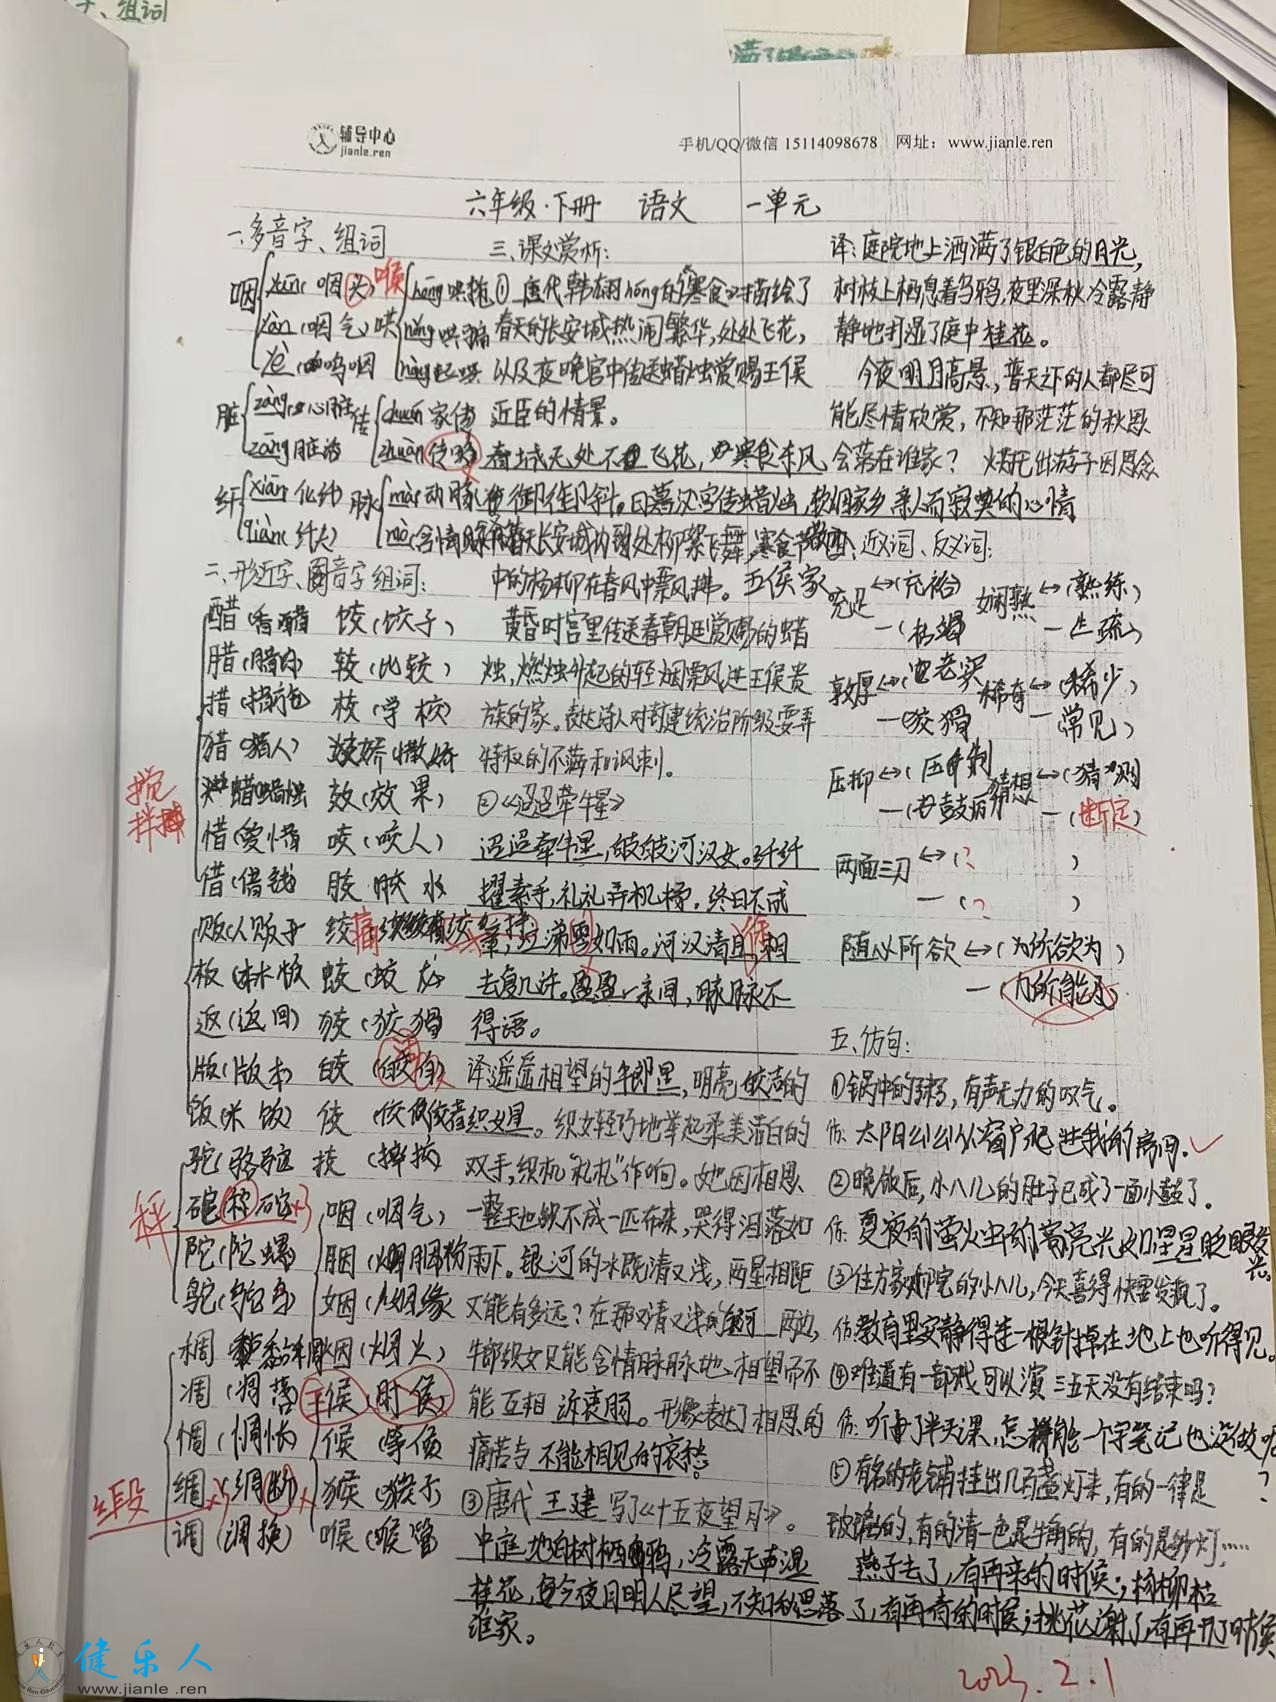 、组词
辅导中心
jianle.ren
手机/QQ/微信 15114098678 网址：www.jianle.ren
六年级·下册 语文 一单元
一、多音字、组词
咽
yān(咽头) 喉
yàn(咽气)
yè(呜咽
哄
hōng哄抢
hǒng哄骗
hòng起哄
脏
zāng(心脏
zàng脏治
传
chuán家传
zhuàn传略
纤
xiān化纤
qiàn(纤夫)
脉
mài动脉
mò(含情脉脉
二、形近字、同音字组词：
醋(香醋 饺(饺子)
腊(腊肉) 较(比较)
措(措施 校(学校)
猎(猎人) 娇(撒娇
蜡蜡烛 效(效果)
搅
拌
惜(爱惜 咬(咬人)
借(借钱 胶 胶水
贩(人贩子 绞痛
板(木板 蛟(蛟龙
返(返回) 狡(狡猾
版(版本) 皎(皎洁)
饭(米饭) 佼(佼佼者
驼(骆驼
砣(秤砣)
秤
陀(陀螺)
鸵(鸵鸟
咽(咽气)
胭(胭粉
姻(姻缘
烟(烟火)
稠
凋(凋落
惆(惆怅
绸(绸断)
绸段
调(调换)
候(时候)
候(等候
猴(猴子
喉(喉管
三、课文赏析：
①唐代韩翃hóng的《寒食》描绘了
春天的长安城热闹繁华，处处飞花，
以及夜晚宫中传送蜡烛赏赐王侯
近臣的情景。
春城无处不飞花，寒食东风
御柳斜。日暮汉宫传蜡烛，轻烟
春天长安城内到处柳絮飞舞，寒食节
中的杨柳在春风中飘拂。五侯家
黄昏时宫里传送着朝廷赏赐的蜡
烛，燃烛升起的轻烟飘进王侯贵
族的家。表达诗人对封建统治阶级耍弄
特权的不满和讽刺。
②《迢迢牵牛星》
迢迢牵牛星，皎皎河汉女。纤纤
擢素手，札札弄机杼。终日不成
章，泣涕零如雨。河汉清且浅，相
去复几许。盈盈一水间，脉脉不
得语。
译遥遥相望的牛郎星，明亮皎洁的
织女星。织女轻巧地举起柔美洁白的
双手，织机“札札”作响。她因相思
一整天也织不成一匹布来，哭得泪落如
雨下。银河的水既清又浅，两星相距
又能有多远？在那又清又浅的银河 两边，
牛郎织女只能含情脉脉地相望而不
能互相诉衷肠。形象表达了相思的
痛苦与不能相见的哀愁。
③唐代 王建 写了《十五夜望月》。
中庭地白树栖鸦，冷露无声湿
桂花，今夜月明人尽望，不知秋思落
谁家。
译：庭院地上洒满了银白色的月光，
树枝上栖息着乌鸦，夜里深秋冷露静
静地打湿了庭中桂花。
今夜明月高悬，普天之下的人都尽可
能尽情欣赏，不知那茫茫的秋思
会落在谁家？烘托出游子因思念
家乡亲人而寂寞的心情
四、近义词、反义词：
充足↔(充裕)
—(枯竭
娴熟↔(熟练)
—生疏)
敦厚↔(老实
—(狡猾
稀奇↔(稀少)
—常见)
压抑↔(压制
—(鼓励
猜想↔(猜测
—(断定)
两面三刀↔(? )
—(? )
随心所欲↔(为所欲为)
—(力所能及
五、仿句：
①锅中的粥，有声无力的叹气。
仿：太阳公公从窗户爬进我的房间。
②晚饭后，小八儿的肚子已成了一面小鼓了。
仿：夏夜的萤火虫的萤亮光如星星眨眼发光。
③住方家大院的小八儿，今天喜得快要发疯了。
仿教育里安静得连一根针掉在地上也听得见。
④难道有一部戏可以演三五天没有结束吗？
仿：听了半天课，怎样能一个字笔记也没做呢？
⑤有名的老铺挂出几百盏灯来，有的一律是
玻璃的，有的清一色是牛角的，有的是纱灯……
燕子去了，有再来的时候；杨柳枯
了，有再青的时候；桃花谢了，有再开了时候
2023.2.1
健乐人
www.jianle.ren